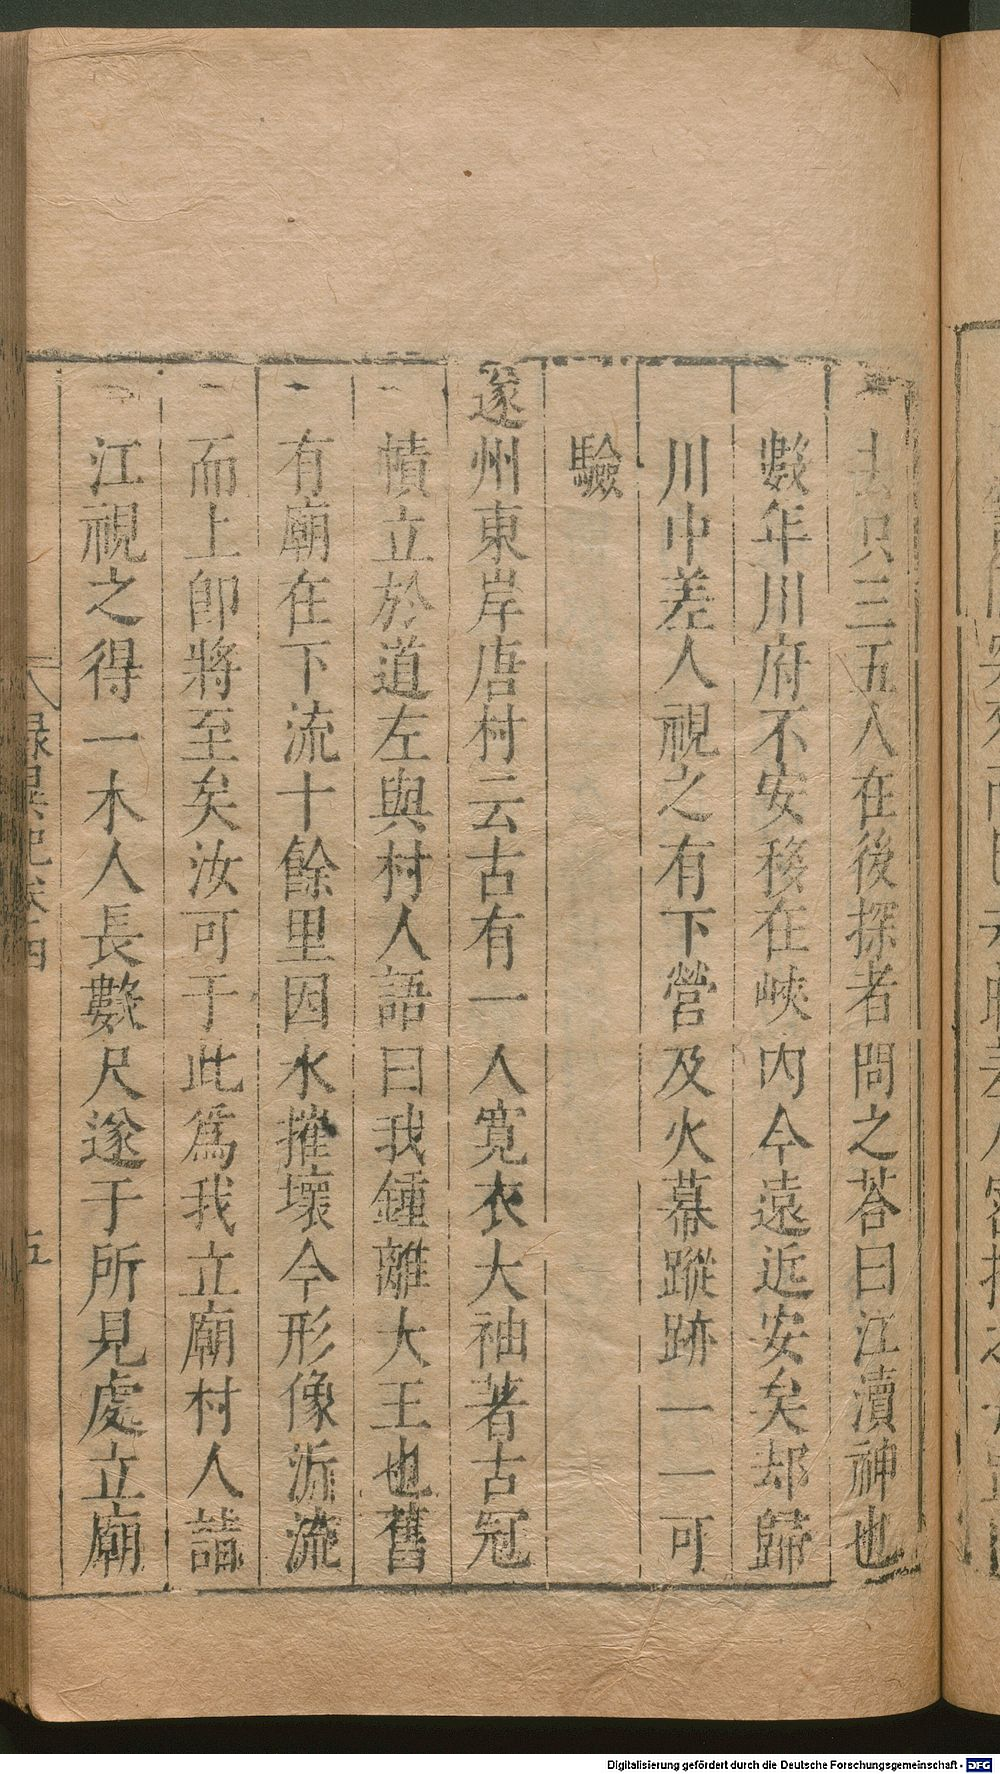 去只三五人在後探者問之荅曰江瀆神也
數年川府不安移在峽内今遠近安矣却歸
川中差人視之有下營及火幕蹤跡一一可
驗
遂州東岸唐村云古有一人寛衣大袖著古冠
幘立於道左與村人語曰我鍾離大王也舊
有廟在下流十餘里因水摧壞今形像泝流
而上即將至矣汝可于此爲我立廟村人詣
江視之得一木人長數尺遂于所見處立廟
録異記卷四
五
Digitalisierung gefördert durch die Deutsche Forschungsgemeinschaft - DFG